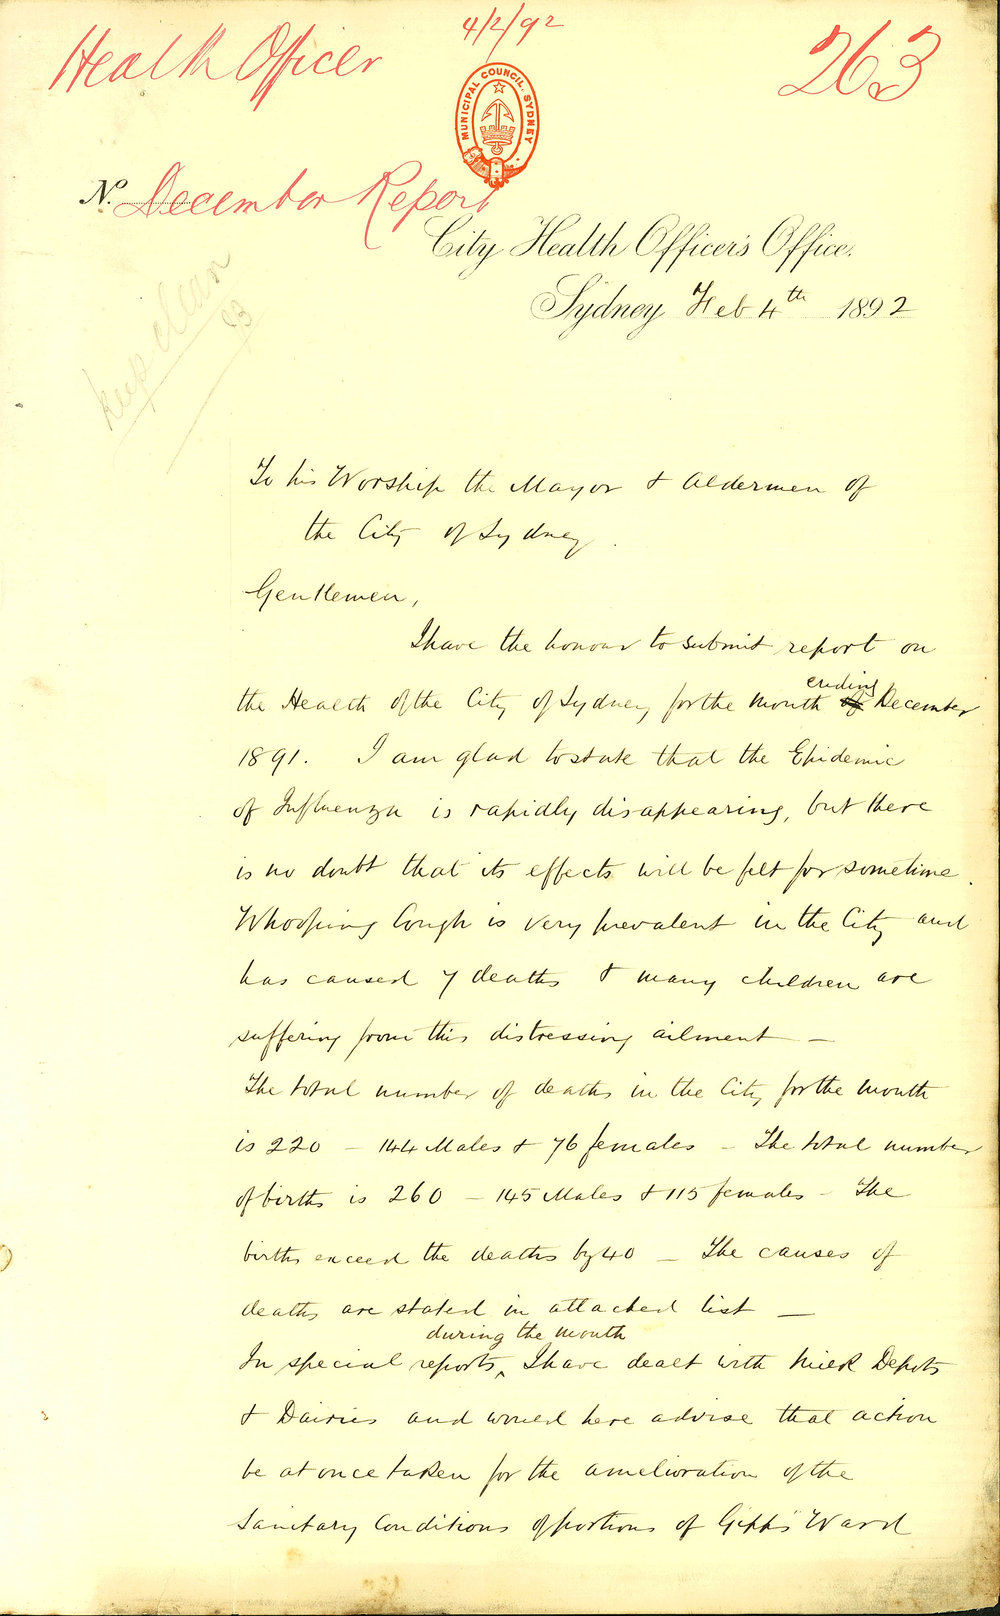 4/2/92
Health Officer
263
MUNICIPAL COUNCIL. SYDNEY
No. December Report
City Health Officer's Office.
Sydney Feb 4th 1892
keep clean
To his Worship the Mayor & Aldermen of
the City of Sydney.
Gentlemen,
I have the honour to submit report on
the Health of the City of Sydney for the month of ending December
1891. I am glad to state that the Epidemic
of Influenza is rapidly disappearing, but there
is no doubt that its effects will be felt for sometime.
Whooping Cough is very prevalent in the City and
has caused 7 deaths & many children are
suffering from this distressing ailment —
The total number of deaths in the City for the month
is 220 — 144 Males & 76 females — The total number
of births is 260 — 145 Males & 115 females — The
births exceed the deaths by 40 — The causes of
deaths are stated in attached list —
during the month
In special reports ‸ I have dealt with Milk Depots
& Dairies and would here advise that action
be at once taken for the amelioration of the
Sanitary Conditions of portions of Gipps' Ward